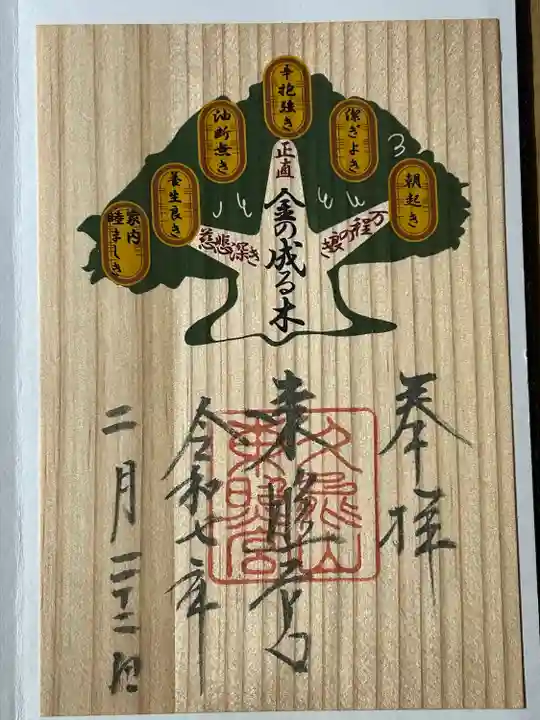 辛抱強き
潔ぎよき
油断無き
朝起き
養生良き
家内睦ましき
正直
慈悲深き
金の成る木
奉拝
東照宮
令和七年
二月二十二日
久能山
東照宮